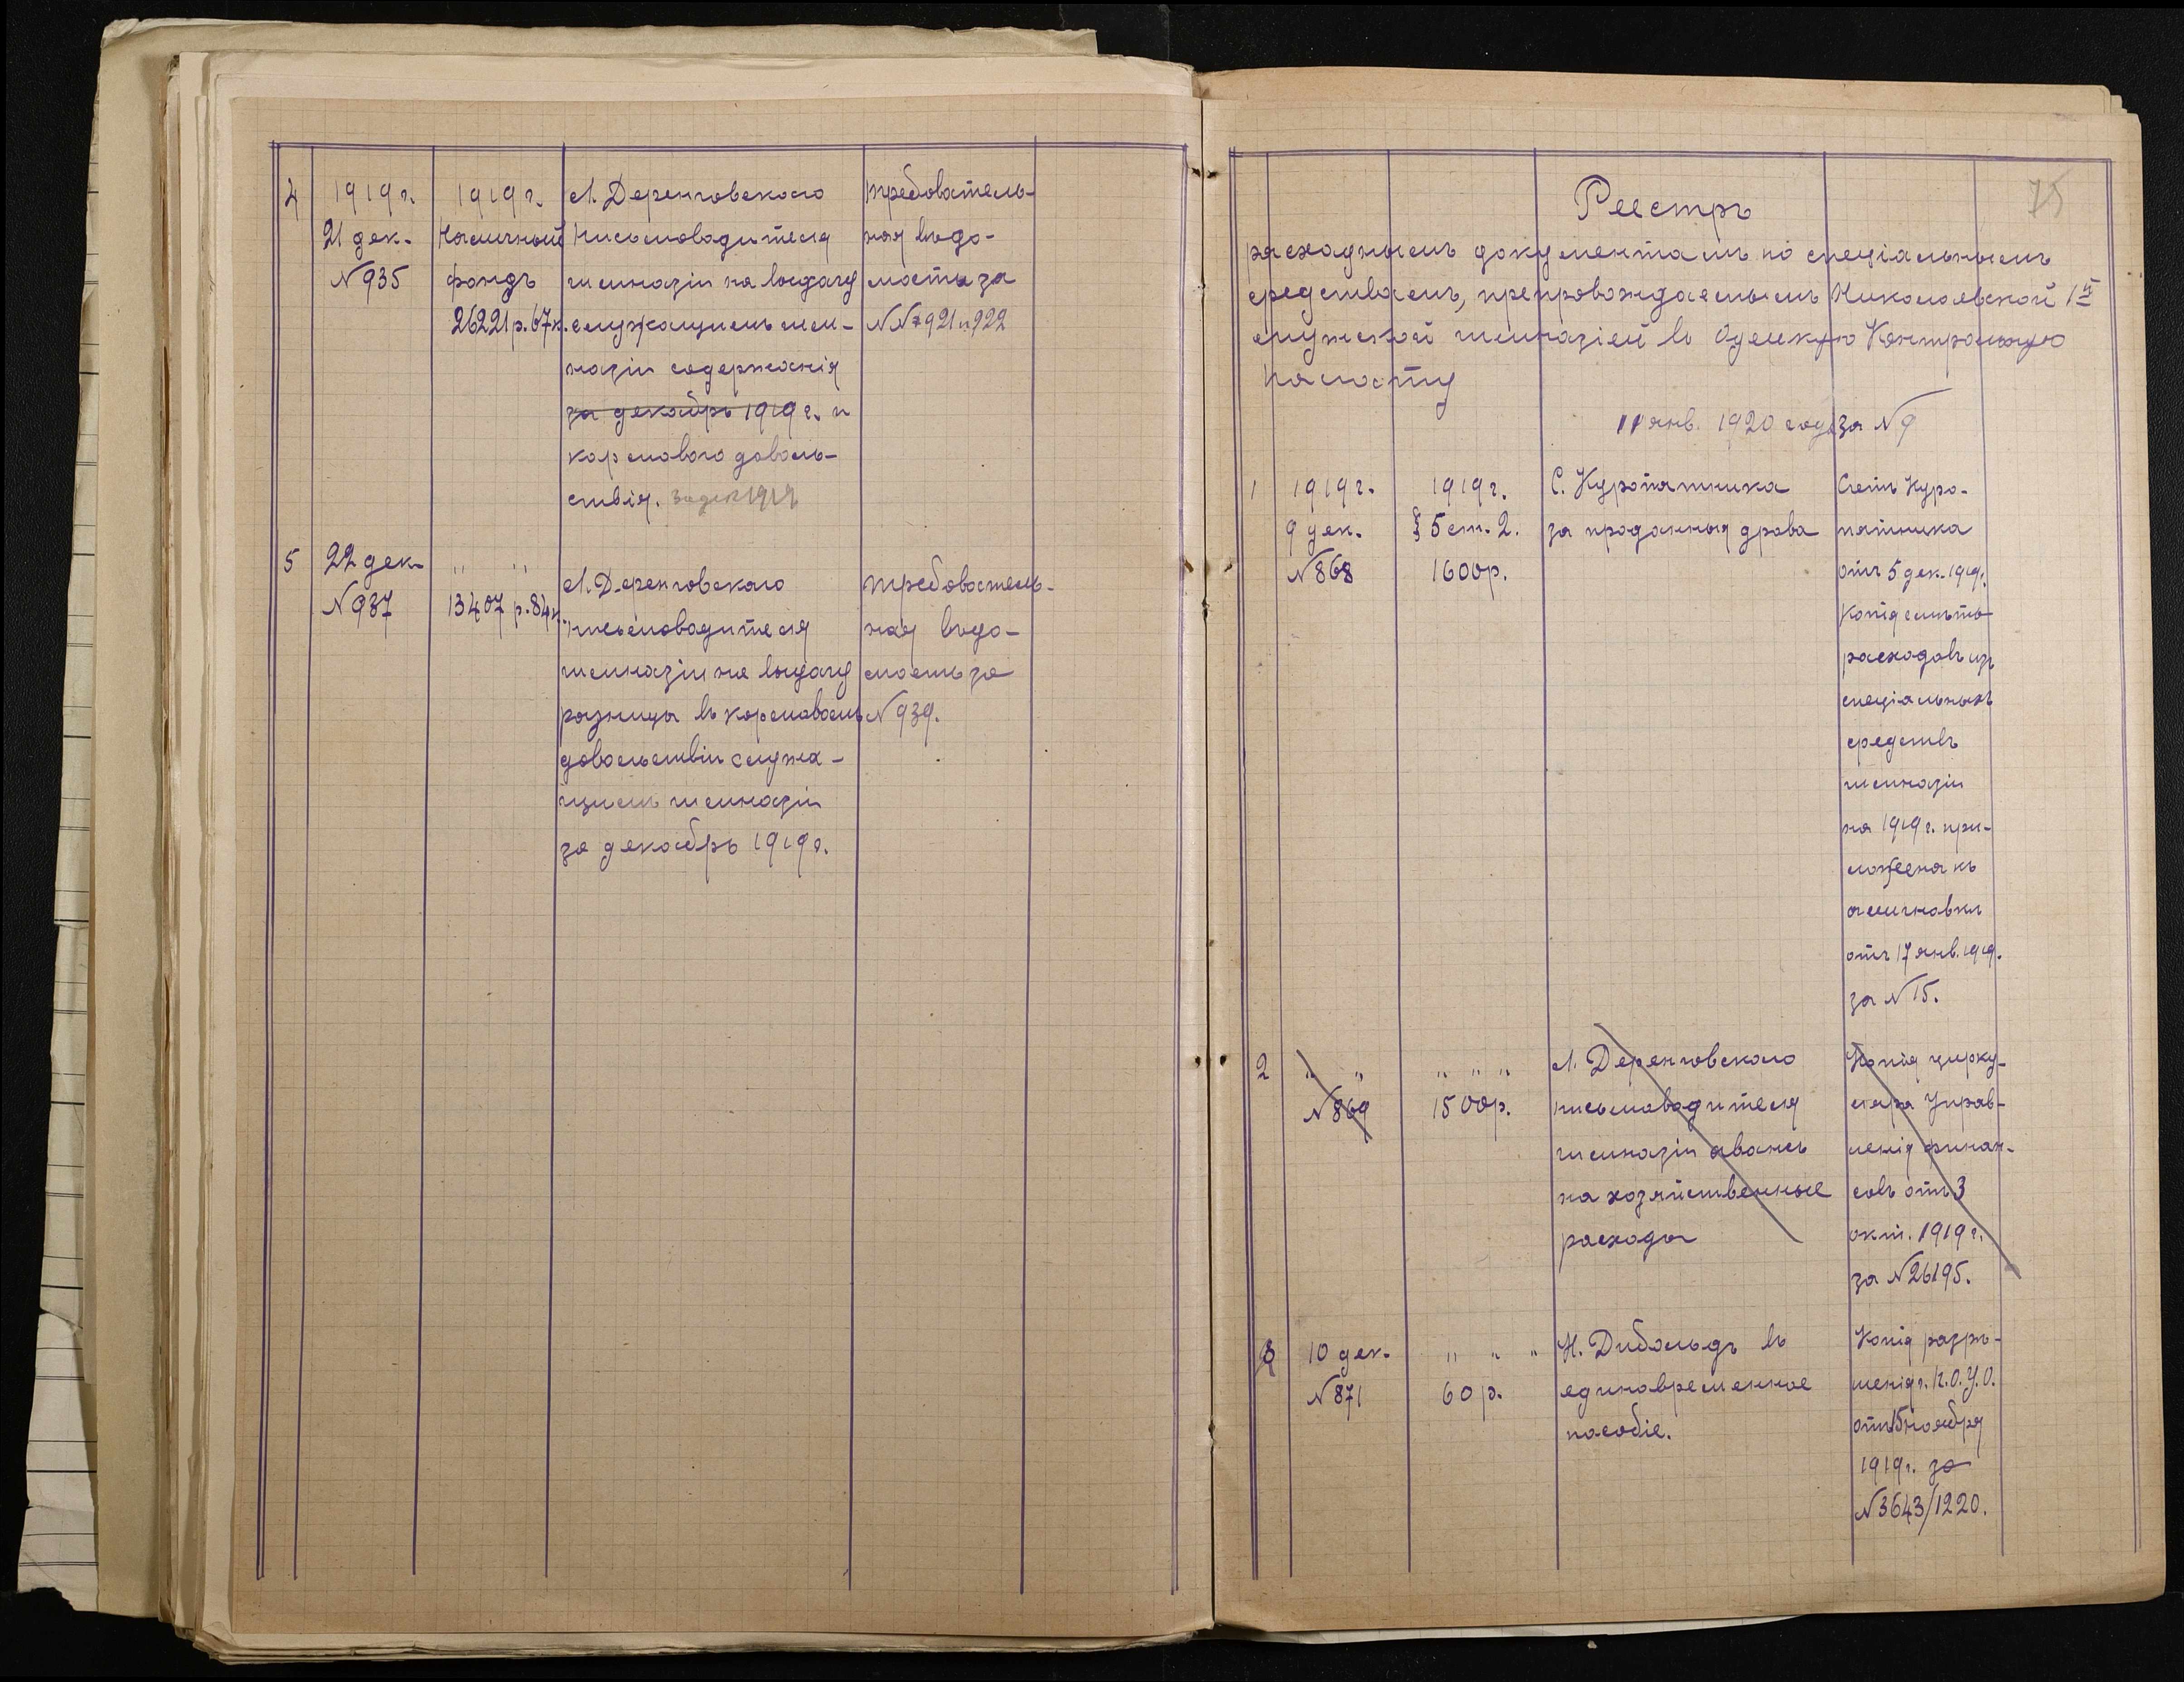 4
1919 г.
21 дек.
№ 935
1919 г.
Наличный
фондъ
26221 р. 67 к.
Л. Деренговскаго
письмоводителя
гимназіи на выдачу
служащимъ гим-
назіи содержанія
за декабрь 1919 г. и
кормового доволь-
ствія. за дек 1919
требователь-
ная вѣдо-
мость за
№№ 921 и 922
5
22 дек.
№ 937
" "
13407 р. 84 к.
Л. Деренговскаго
письмоводителя
гимназіи на выдачу
разницы въ кормовомъ
довольствіи служа-
щимъ гимназіи
за декабрь 1919 г.
требователь-
ная вѣдо-
мость за
№ 939.
75
Реестръ
расходнымъ документамъ по спеціальнымъ
средствамъ, препровождаемымъ Николаевской 1й
мужской гимназіей въ Одесскую Контрольную
Палату
11 янв. 1920 года за № 9
1
1919 г.
9 дек.
№ 868
1919 г.
§ 5 ст. 2.
1600 р.
С. Куропатника
за проданныя дрова
Счетъ Куро-
патника
отъ 5 дек. 1919 г.
Копія смѣты
расходовъ изъ
спеціальныхъ
средствъ
гимназіи
на 1919 г. при-
ложена къ
ассигновкѣ
отъ 17 янв. 1919.
за № 15.
2
" "
№ 869
" " "
1500 р.
Л. Деренговскаго
письмоводителя
гимназіи авансъ
на хозяйственные
расходы
Копія цирку-
ляра Управ-
ленія финан-
совъ отъ 3
окт. 1919 г.
за № 26195.
10 дек.
№ 871
" " "
60 р.
Н. Дибольдъ въ
единовременное
пособіе.
Копія разрѣ-
шенія г. П. О. У. О.
отъ 15 ноября
1919 г. за
№ 3643/1220.